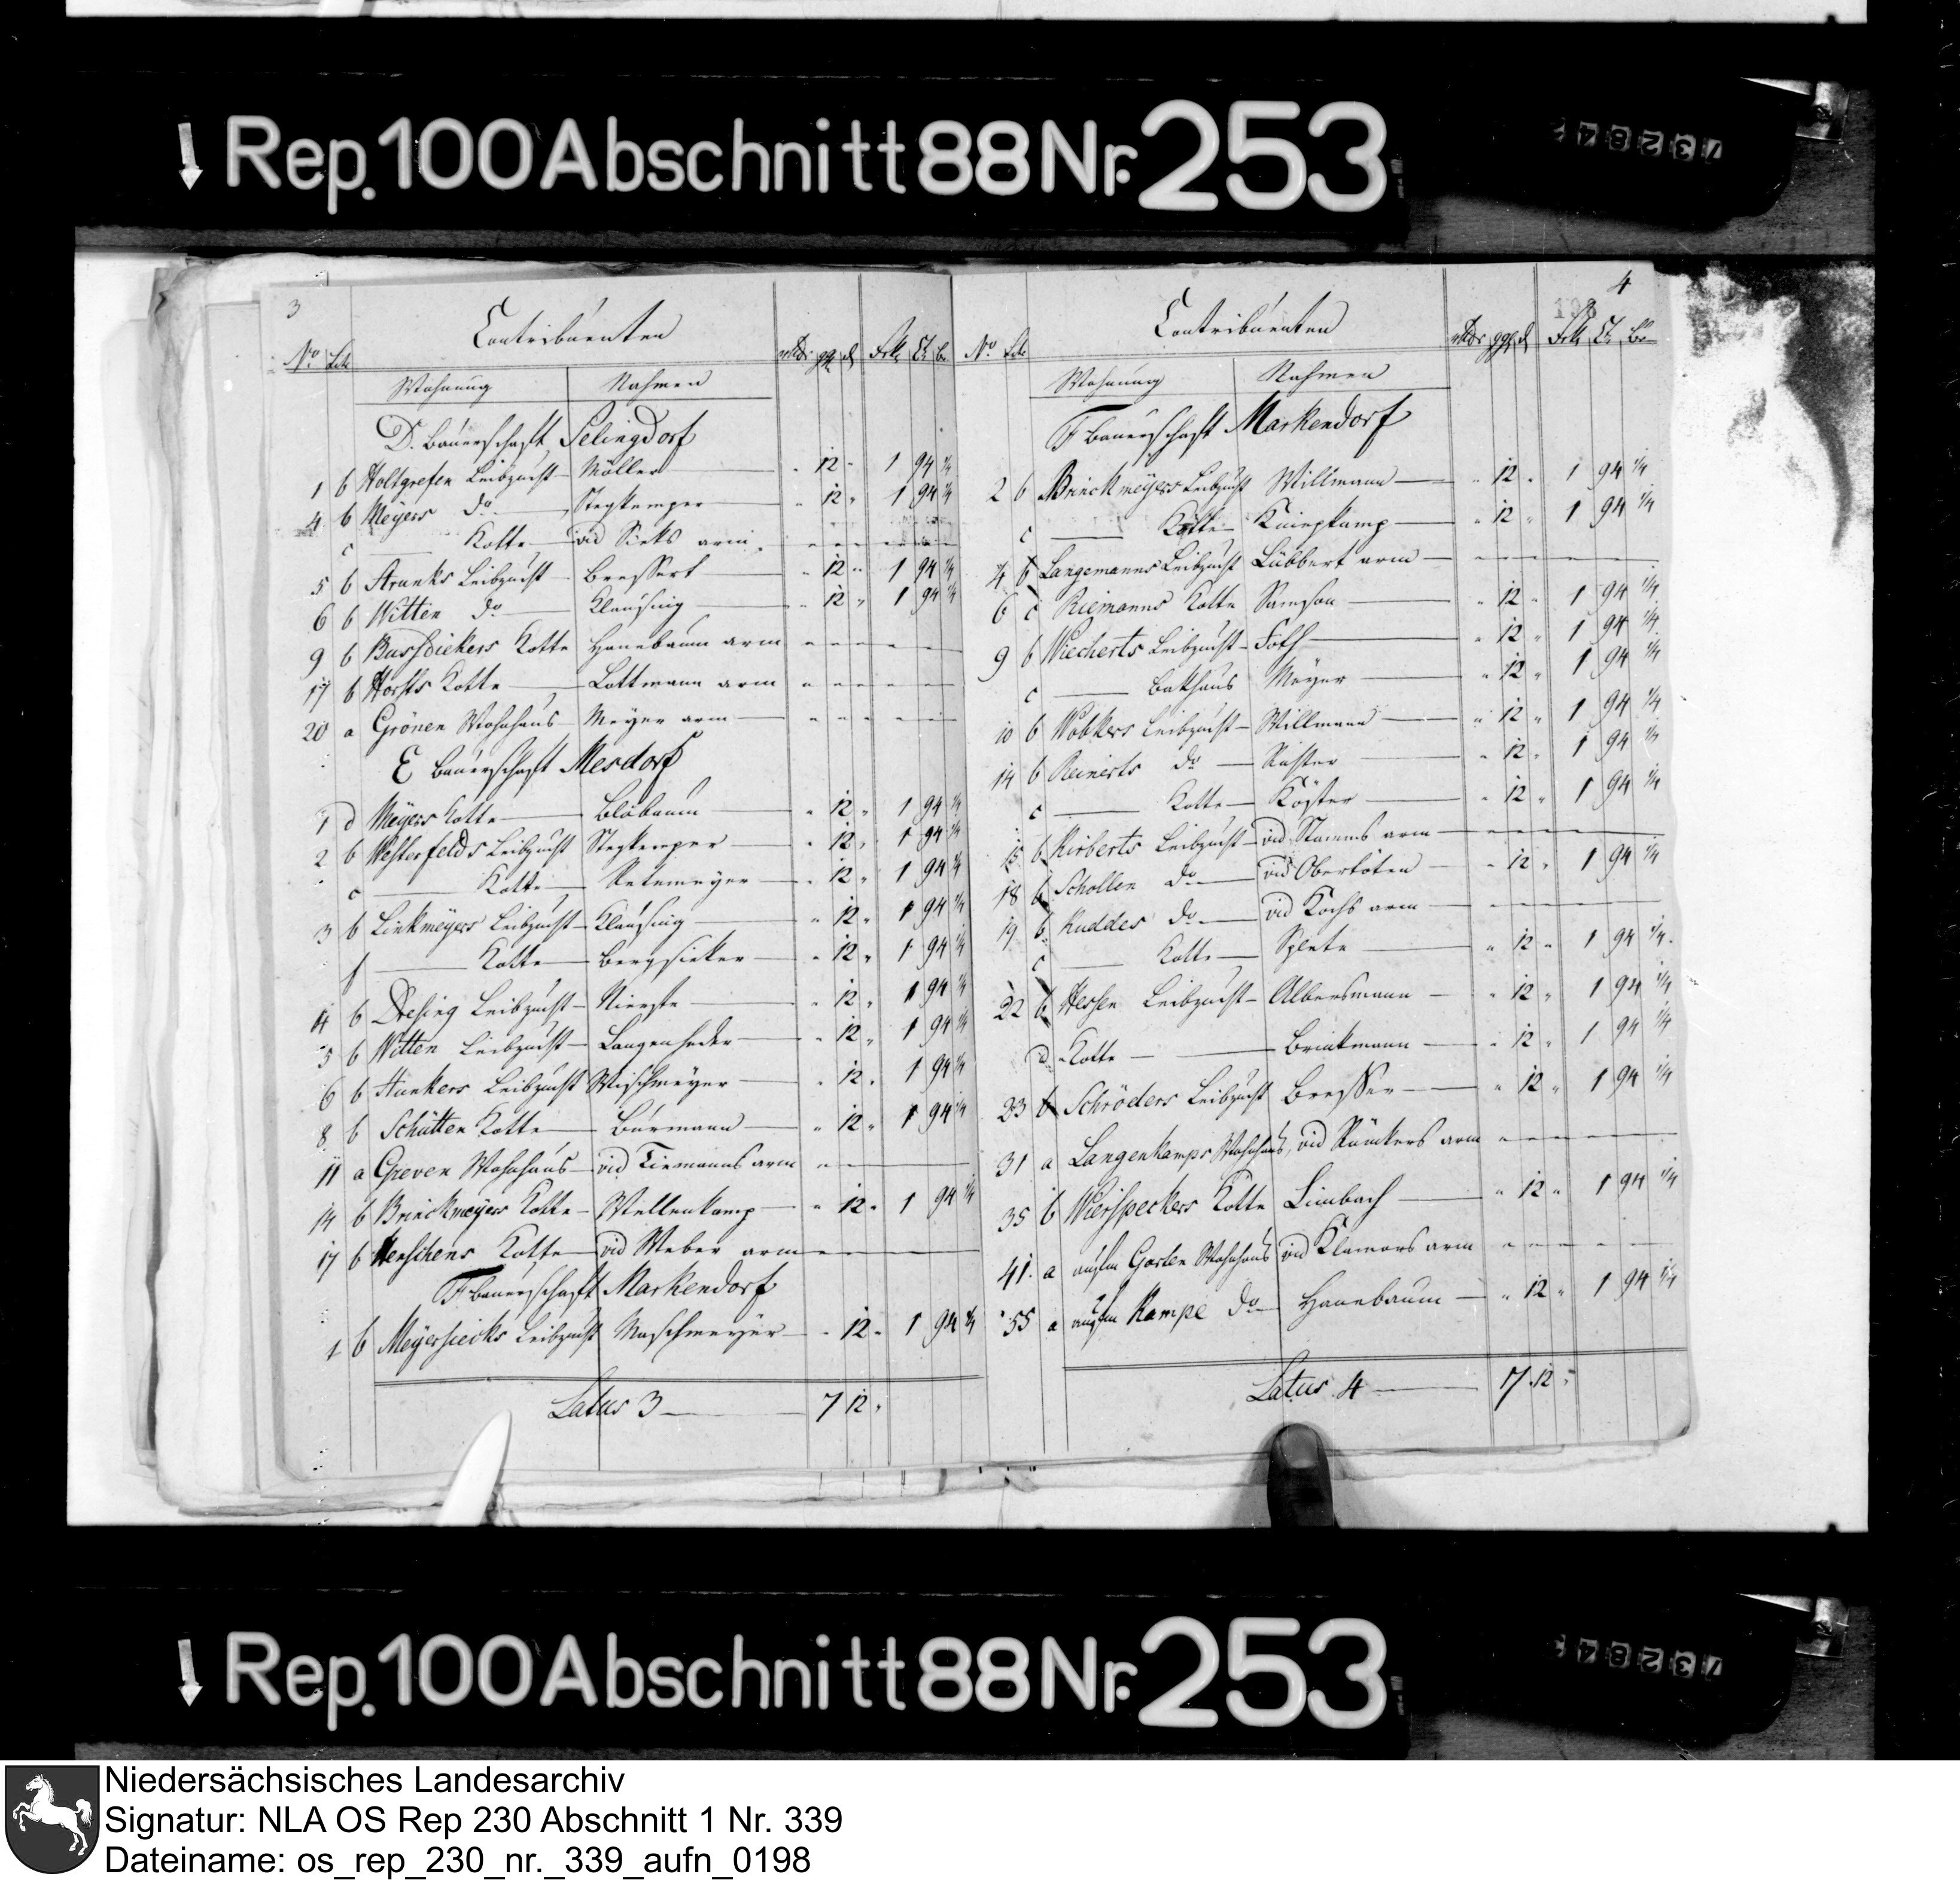 Rep. 100 Abschnitt 88 Nr. 253
73284
3
Contribuenten
No Litt
rthlr ggr d Frk Ct Br
Wohnung Nahmen
D. Bauerschaft Selingdorf
1 b Holtgrefen Leibzucht Möller " 12 " 1 94 1/4
4 b Meyers do Stegkemper " 12 " 1 94 1/4
c Kotte vid Sieks arm
5 b Strunks Leibzucht Bressert " 12 " 1 94 1/4
6 b Witten do Klausing " 12 " 1 94 1/4
9 b Bussdiekers Kotte Hanebaum arm
17 b Horsts Kotte Lottmann arm
20 a Grönen Wohnhaus Meyer arm
E Bauerschaft Mesdorf
1 d Meyers Kotte Blöbaum " 12 " 1 94 1/4
2 b Westerfelds Leibzucht Stegkemper " 12 " 1 94 1/4
c Kotte " 12 " 1 94 1/4
3 b Linkmeyers Leibzucht Klausing " 12 " 1 94 1/4
f Kotte Bergsieker " 12 " 1 94 1/4
4 b Dresing Leibzucht Nierste " 12 " 1 94 1/4
5 b Witten Leibzucht Langenheder " 12 " 1 94 1/4
6 b Hunkers Leibzucht Wischmeyer " 12 " 1 94 1/4
8 b Schütten Kotte Burmann " 12 " 1 94 1/4
11 a Greven Wohnhaus vid Tiemanns arm
14 b Brinckmeyers Kotte Wellenkamp " 12 " 1 94 1/4
17 b Kotte vid Weber arm
F Bauerschaft Markendorf
1 b Meyersiecks Leibzucht Maschmeyer " 12 " 1 94 1/4
Latus 3 7 12 "
4
198
Contribuenten
No Litt
rthlr ggr d Frk Ct Br
Wohnung Nahmen
F Bauerschaft Markendorf
2 b Brinckmeyers Leibzucht Willmann " 12 " 1 94 1/4
c Kotte Kniepkamp " 12 " 1 94 1/4
4 b Langemanns Leibzucht Lübbert arm
6 c Riemanns Kotte Samson " 12 " 1 94 1/4
9 b Wiecherts Leibzucht Foth " 12 " 1 94 1/4
c Bakhaus Meyer " 12 " 1 94 1/4
10 b Wobkers Leibzucht Willmann " 12 " 1 94 1/4
14 b Reinerts do " 12 " 1 94 1/4
c Kotte Köster " 12 " 1 94 1/4
15 b Kirberts Leibzucht vid Stamms arm
18 b Schollen do vid Oberköten " 12 " 1 94 1/4
19 b Kuddes do vid Kochs arm
c Kotte Splete " 12 " 1 94 1/4
22 b Hessen Leibzucht Albersmann " 12 " 1 94 1/4
d Kotte Brinkmann " 12 " 1 94 1/4
23 b Schröders Leibzucht Bresser " 12 " 1 94 1/4
31 a Langenkamps Wohnhaus, vid Rünkers arm
35 b Wierspeckers Kotte Limbach " 12 " 1 94 1/4
41. a aufm Garten Wohnhaus vid Klamors arm
55 a aufm Kampe do Hanebaum " 12 " 1 94 1/4
Latus 4 7 12 "
Rep. 100 Abschnitt 88 Nr. 253
73284
Niedersächsisches Landesarchiv
Signatur: NLA OS Rep 230 Abschnitt 1 Nr. 339
Dateiname: os_rep_230_nr._339_aufn_0198